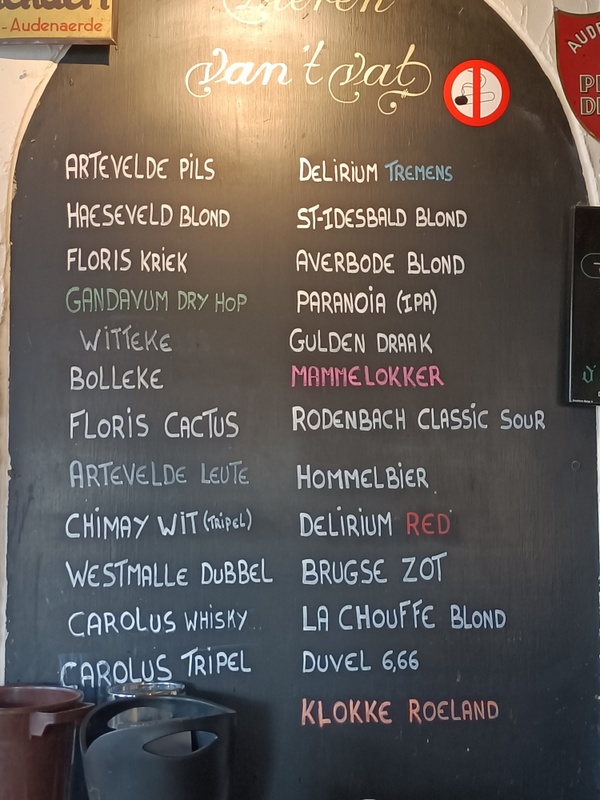 Bieren
van 't vat
- Audenaerde
ARTEVELDE PILS
HAESEVELD BLOND
FLORIS KRIEK
GANDAVUM DRY HOP
WITTEKE
BOLLEKE
FLORIS CACTUS
ARTEVELDE LEUTE
CHIMAY WIT (TRIPEL)
WESTMALLE DUBBEL
CAROLUS WHISKY
CAROLUS TRIPEL
DELIRIUM TREMENS
ST-IDESBALD BLOND
AVERBODE BLOND
PARANOIA (IPA)
GULDEN DRAAK
MAMMELOKKER
RODENBACH CLASSIC SOUR
HOMMELBIER
DELIRIUM RED
BRUGSE ZOT
LA CHOUFFE BLOND
DUVEL 6,66
KLOKKE ROELAND